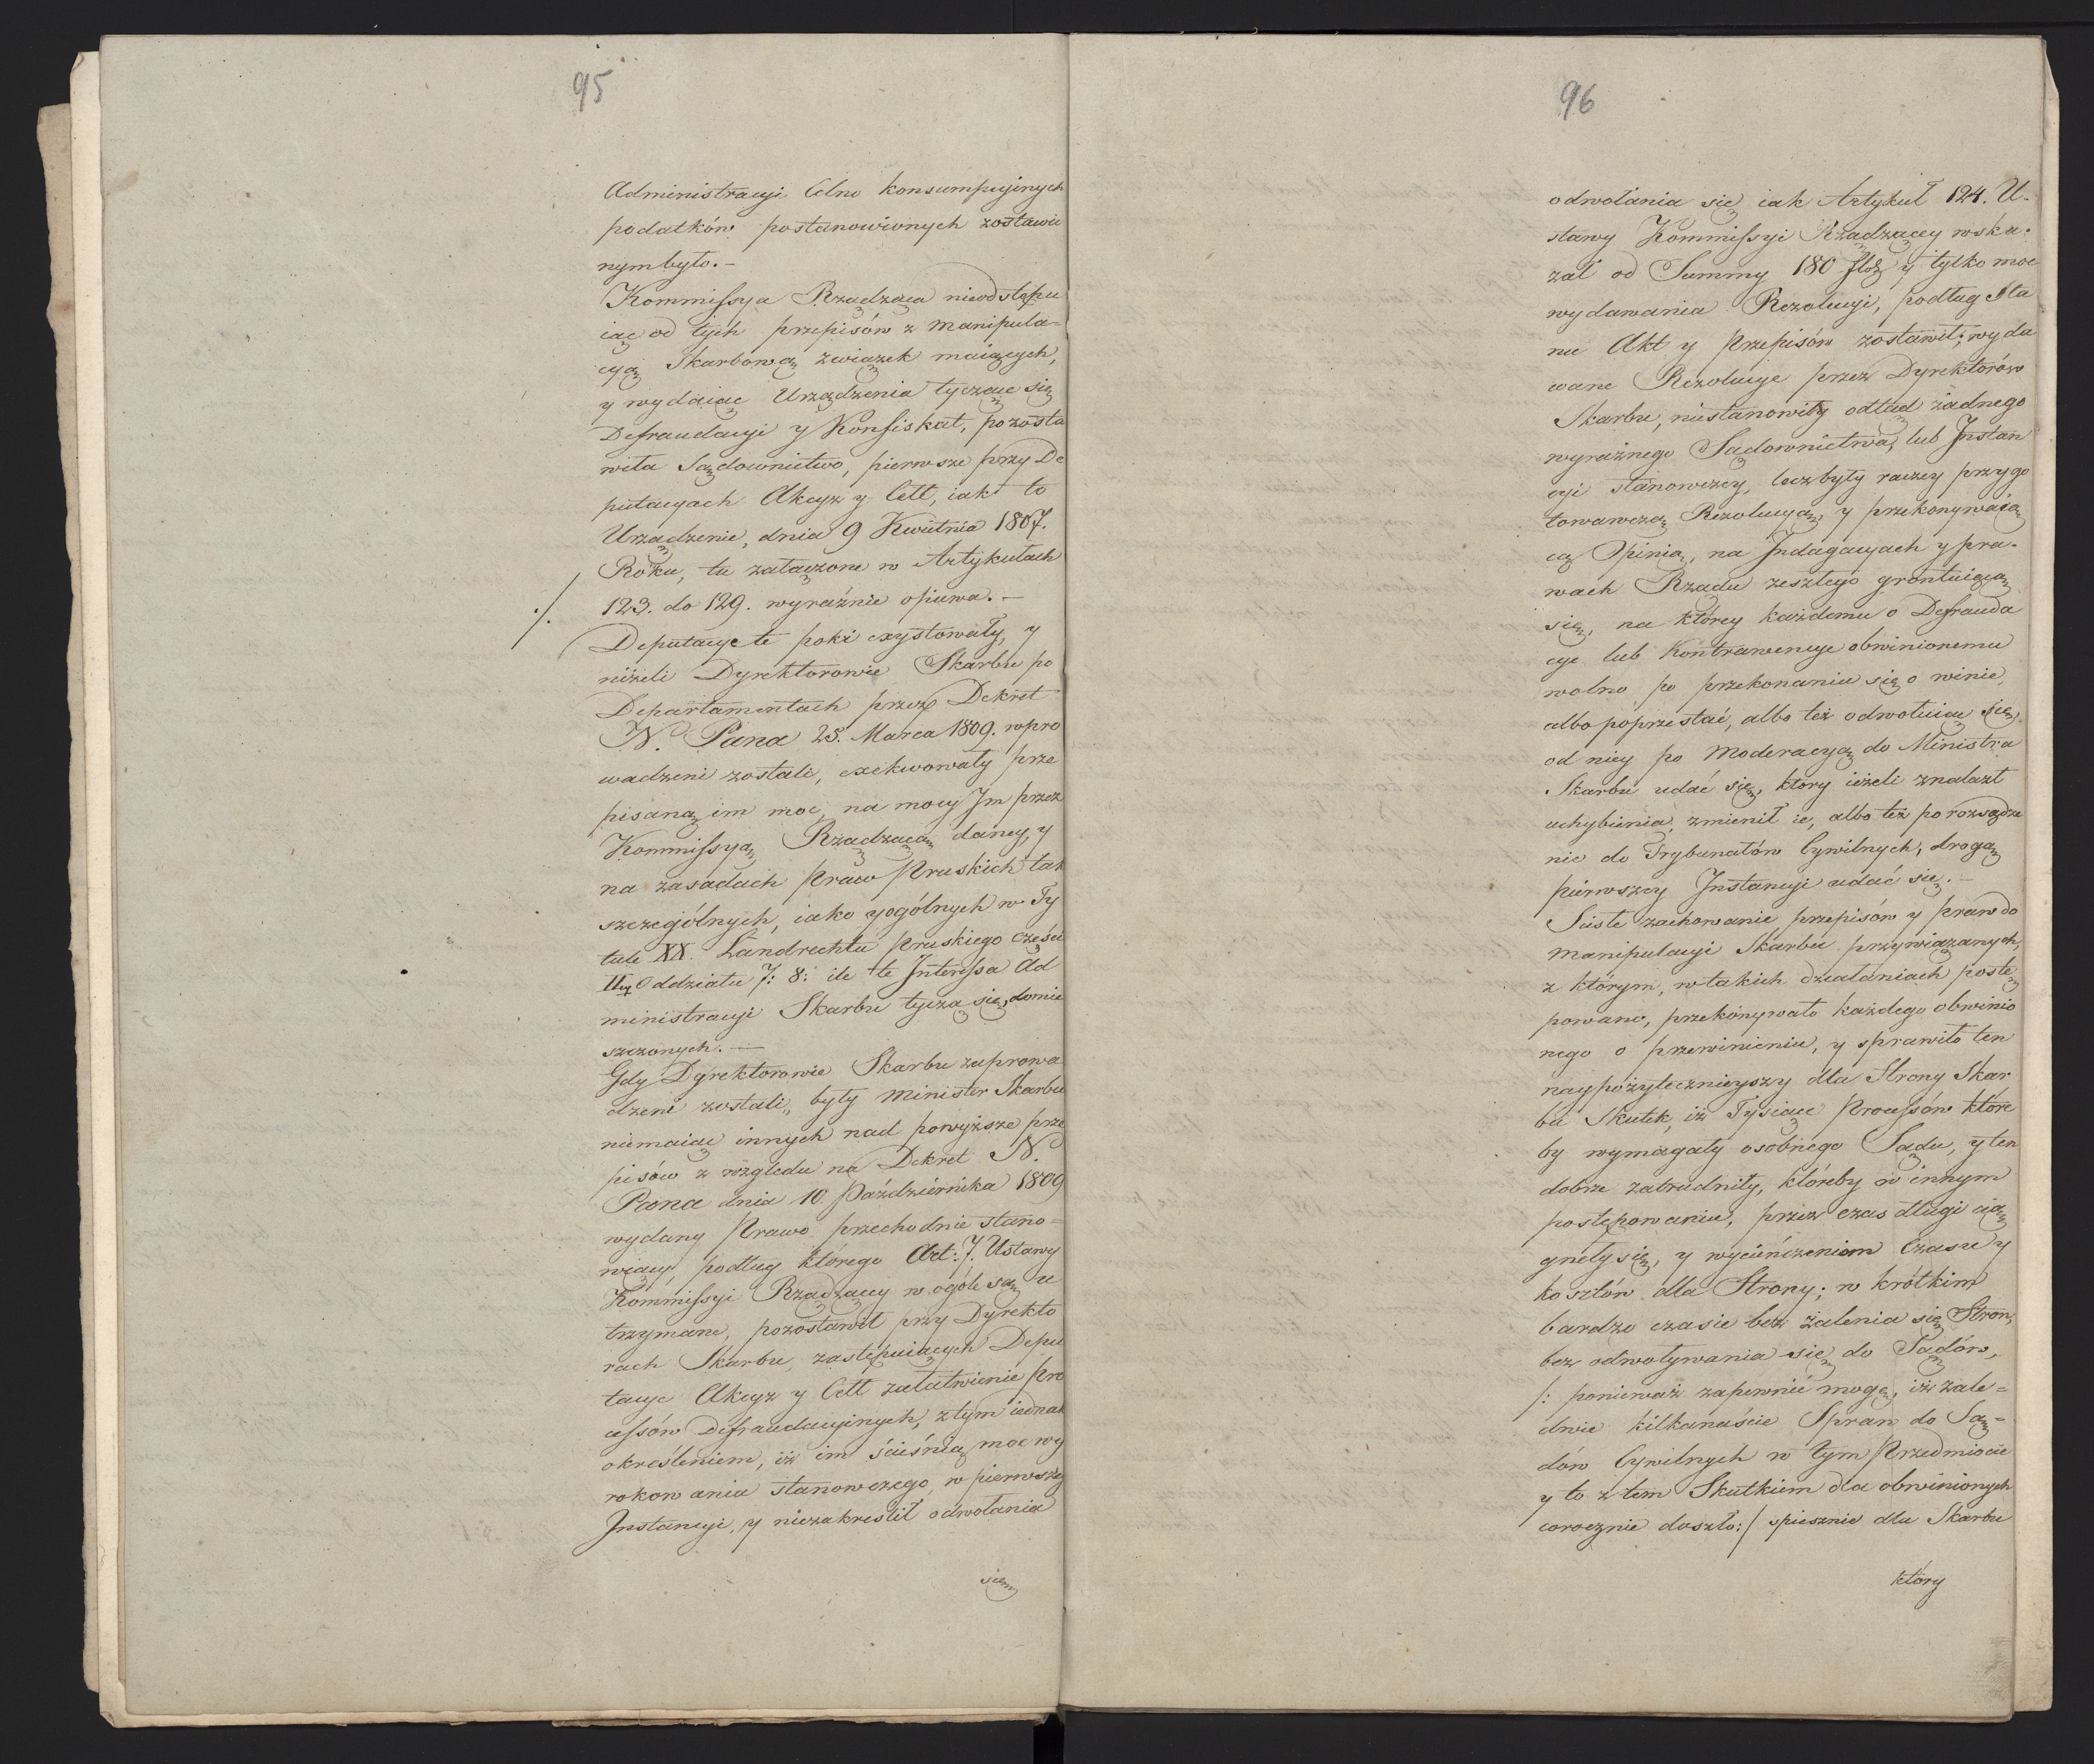 95
Administracyi Celno konsumpcyinych
podatków postanowionych zostawio
nym było. –
Kommissya Rządząca nieodstępu
iąc od tych przepisów z manipula=
cyą Skarbową związek maiących,
y wydaiąc Urządzenia tyczące się
Defraudacyi y Konfiskat, pozosta
wiła Sądownictwo, pierwsze przy De
putacyach Akcyz y Cełł, iak to
Urządzenie, dnia 9 Kwietnia 1807.
Roku, tu załączone w Artykułach
./. 123. do 129. wyraźnie opiewa. –
Deputacye te poki exystowały, y
niżeli Dyrektorowie Skarbu po
Departamentach przez Dekret
N. Pana 25. Marca 1809. wpro
wadzeni zostali, exekwowały prze
pisaną im moc, na mocy Im przez
Kommissyą Rządzącą daney, y
na zasadach Praw Pruskich tak
szczególnych, iako y ogólnych w Ty
tule XX. Landrechtu Pruskiego części
IIey Oddziału 7: 8: ile te Interessa Ad
ministracyi Skarbu tyczą się, domie
szczonych. –
Gdy Dyrektorowie Skarbu zaprowa
dzeni zostali, były Minister Skarbu
niemaiąc innych nad powyższe prze
pisów z względu na Dekret N.
Pana dnia 10. Października 1809
wydany Prawo przechodnie stano=
wiący podług którego Art: 7. Ustawy
Kommissyi Rządzącey w ogóle są u
trzymane, pozostawił przy Dyrekto
rach Skarbu, zastępuiących Depu
tacye Akcyz y Cełł załatwienie Pro
cessów Defraudacyinych, z tym iednak
określeniem, iż im ścieśnią moc wy
rokowania stanowczego, w pierwszey
Instancyi, y niezakreslił odwołania
się
96
odwołania się iak Artykuł 124. U-
stawy Kommissyi Rządzącey wska-
zał od Summy 180 Złot y tylko moc
wydawania Rezolucyi, podług Sta
nu Akt y Przepisów zostawił; wyda
wane Rezolucye przez Dyrektorów
Skarbu, niestanowiły odtąd żadnego
wyraźnego Sądownictwa, lub Instan
cyi stanowczey, lecz były raczey przygo
towawczą Rezolucyą, y przekonywaią
cą Opinią, na Indagacyach y pra-
wach Rządu zeszłego gruntuiącą
się, na którey każdemu o Defrauda
cye lub Kontrawencye obwinionemu
wolno po przekonaniu się o winie,
albo poprzestać, albo też odwołuiąc się
od niey po Moderacyą do Ministra
Skarbu udać się, który ieżeli znalazł
uchybienia, zmienił ie, albo też po rozsądze
nie do Trybunałów Cywilnych, drogą
pierwszey Instancyi udać się. –
Ścisłe zachowanie przepisów y praw do
manipulacyi Skarbu przywiązanych,
z którym, w takich działaniach postę
powano, przekonywało każdego obwinio
nego o przewinieniu, y sprawiło ten
naypożytecznieyszy dla Strony Skar
bu Skutek, iż Tysiące Processów które
by wymagały osobnego Sądu, y ten
dobrze zatrudniły, któreby w innym
postępowaniu, przez czas długi cią
gnęły się, y wycieńczeniem Czasu y
kosztów dla Strony; w krótkim
bardzo czasie bez żalenia się Stron,
bez odwoływania się do Sądów,
/: ponieważ zapewnić mogę, iż zale=
dwie kilkanaście Spraw do Są=
dów Cywilnych w tym Przedmiocie
y to z tem Skutkiem dla obwinionych
corocznie doszło:/ spiesznie dla Skarbu
który